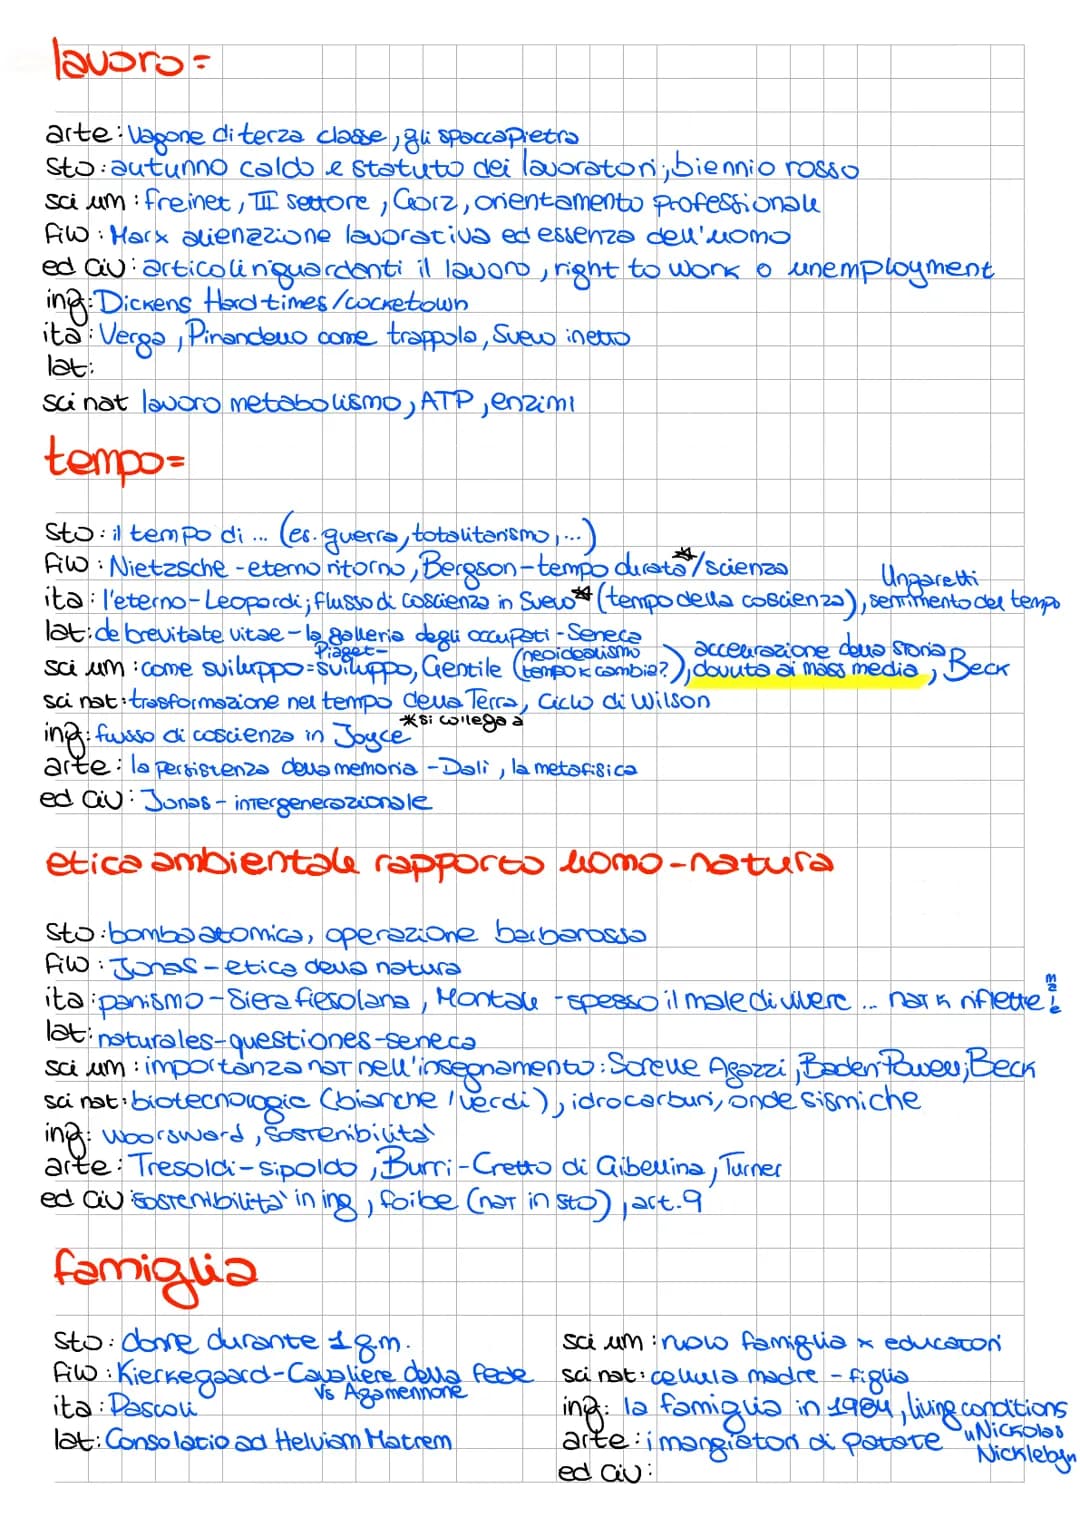 lavoro=
arte: Vagone di terza classe, gli spaccapietra
sto: autunno caldo e statuto dei lavoratori, biennio rosso
sci um: freinet, III settore, Gorz, orientamento professionale
filo: Marx alienazione lavorativa ed essenza dell'uomo
ed civ: articoli riguardanti il lavoro, right to work o unemployment
ing: Dickens Hard times/cocketown
ita: Verga, Pirandello come trappola, Svevo inetto
lat:
sci nat lavoro metabolismo, ATP, enzimi
tempo=
sto: il tempo di ... (es. guerra, totalitarismo, ...)
filo: Nietzsche - eterno ritorno, Bergson - tempo durata*/scienza
ita: l'eterno - Leopardi; flusso di coscienza in Svevo* (tempo della coscienza), Ungaretti sentimento del tempo
lat: de brevitate vitae - la galleria degli occupati - Seneca
sci um: come sviluppo = Piaget - sviluppo, Gentile (neoidealismo tempo k cambia?), accelerazione della storia dovuta ai mass media, Beck
sci nat: trasformazione nel tempo della Terra, Ciclo di Wilson
ing: flusso di coscienza in Joyce *si collega a
arte: la persistenza della memoria - Dalì, la metafisica
ed civ: Jonas - intergenerazionale
etica ambientale rapporto uomo-natura
sto: bomba atomica, operazione barbarossa
filo: Jonas - etica della natura
ita: panismo - Siera fiesolana, Montale - spesso il male di vivere ... nat k riflette male
lat: naturales - questiones - seneca
sci um: importanza nat nell'insegnamento: Sorelle Agazzi, Baden Powell, Beck
sci nat: biotecnologie (bianche/verdi), idrocarburi, onde sismiche
ing: woorsword, sostenibilità
arte: Tresoldi - sipoldo, Burri - Cretto di Gibellina, Turner
ed civ sostenibilità in ing, foibe (nat in sto), art. 9
famiglia
sto: donne durante 1 g.m.
filo: Kierkegaard - Cavaliere della fede vs Agamennone
ita: Pascoli
lat: Consolatio ad Helviam Matrem
sci um: ruolo famiglia x educatori
sci nat: cellula madre - figlia
ing: la famiglia in 1984, living conditions in Nickolas Nickleby
arte: i mangiatori di patate
ed civ: